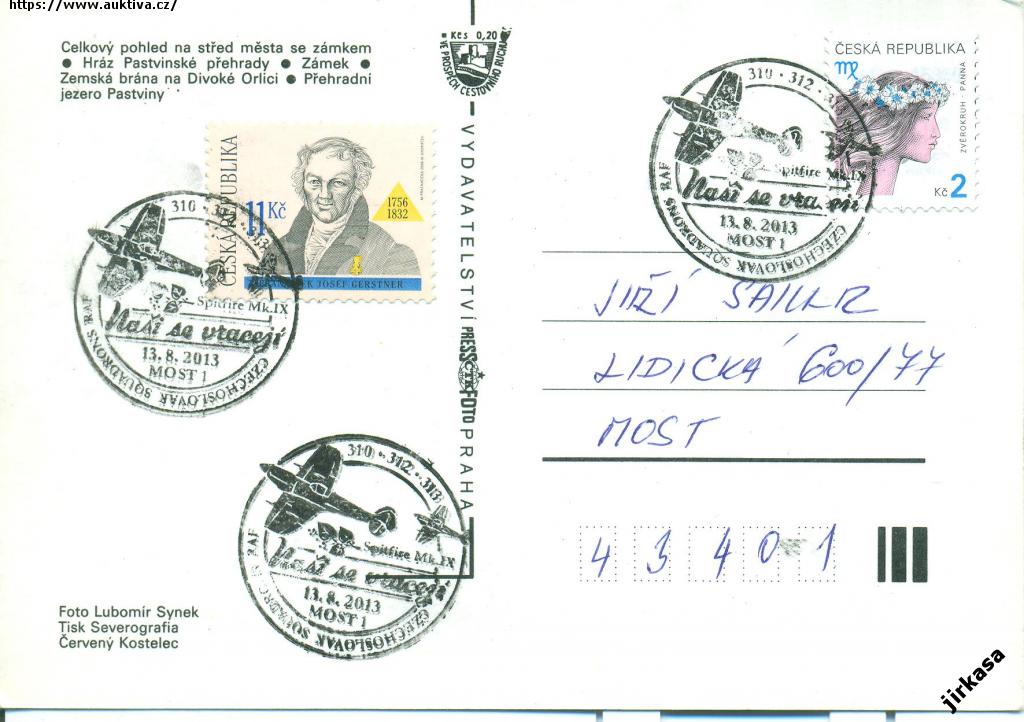 https://www.auktiva.cz/
Celkový pohled na střed města se zámkem
● Hráz Pastvinské přehrady ● Zámek ●
Zemská brána na Divoké Orlici ● Přehradní
jezero Pastviny
Kčs 0,20
VE PROSPĚCH CESTOVNÍHO RUCHU
VYDAVATELSTVÍ PRESSČTKFOTO PRAHA
ČESKÁ REPUBLIKA
11 Kč
1756
1832
JOSEF GERSTNER
310 · 312 · 313
Spitfire Mk.IX
Naši se vracejí
13. 8. 2013
MOST 1
CZECHOSLOVAK SQUADRONS RAF
310 · 312 · 313
Spitfire Mk.IX
Naši se vracejí
13. 8. 2013
MOST 1
CZECHOSLOVAK SQUADRONS RAF
ČESKÁ REPUBLIKA
ZVĚROKRUH - PANNA
Kč 2
310 · 312 ·
Spitfire Mk.IX
Naši se vracejí
13. 8. 2013
MOST 1
CZECHOSLOVAK SQUADRONS RAF
JIŘÍ
LIDICKÁ 600/77
MOST
434 01
Foto Lubomír Synek
Tisk Severografia
Červený Kostelec
jirkasa